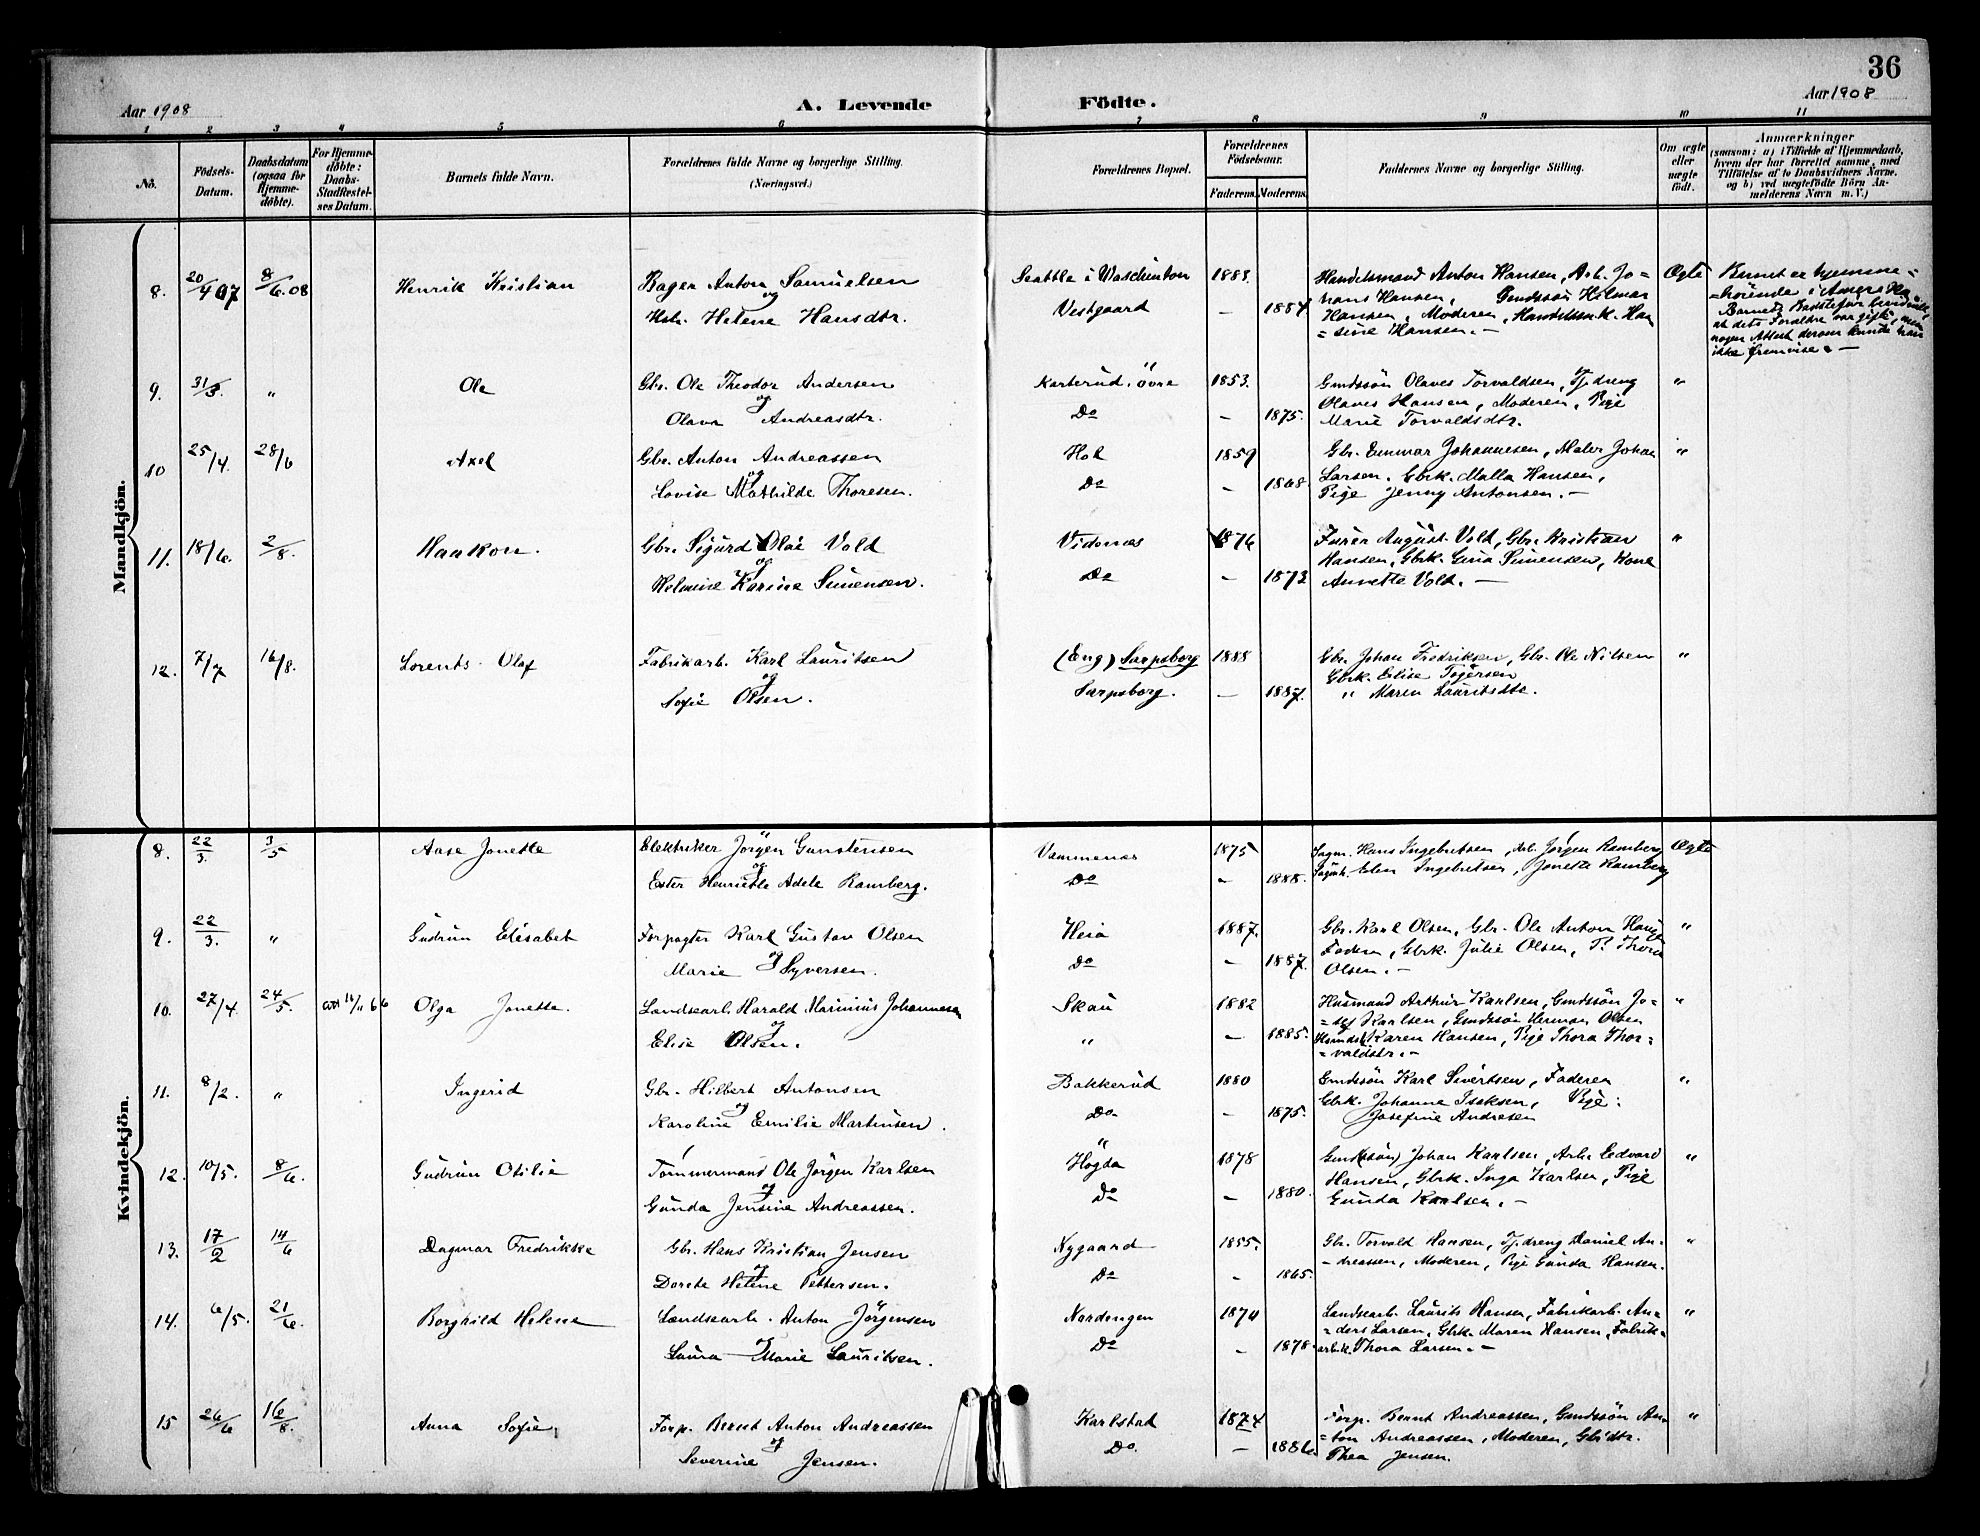 36
Aar 1908
A. Levende Födte.
Aar 1908
1 2 3 4 5 6 7 8 9 10 11
No.
Födsels-Datum.
Daabsdatum (ogsaa for Hjemme-döbte).
For Hjemme-döbte: Daabs-Stadfæstel-ses Datum.
Barnets fulde Navn.
Forældrenes fulde Navne og borgerlige Stilling. (Næringsvei.)
Forældrenes Bopæl.
Forældrenes Födselsaar.
Faderens. Moderens.
Faddernes Navne og borgerlige Stilling.
Om ægte eller uægte födt.
Anmærkninger
(saasom: a) i Tilfælde af Hjemmedaab,
hvem der har forrettet samme, med
Tilföielse af to Daabsvidners Navne.
og b) ved uægtefödte Börn An-
melderens Navn m. V.)
Mandkjön.
8. 20/4 07 8/6.08 Henrik Kristian Bager Anton Samuelsen Seattle i Waschinton 1883. Handelsmand Anton Hansen, Arb. Jo= Ægte Barnet er hjemme=
og hans Hansen, Gmdssön Hilmar =hörende i Amerika
Hstr. Helene Hansdtr. Vestgaard – 1887 Hansen, Moderen, Handelsmk. Han Barnets Bedstefar
=sine Hansen. – at dets Forældre var gift, men
nogen Attest derom kunde han
ikke fremvise. –
9. 31/3. " Ole Gbr. Ole Theodor Andersen Karterud, övre 1853. Gmdssön Olaves Torvaldsen, Tj.dreng "
og Olaves Hansen, Moderen, Pige
Olava Andreasdtr. Do – 1875. Marie Torvaldsdtr.
10 25/4. 28/6 Axel Gbr. Anton Andreassen Hol 1859 Gbr. Emmar Johannesen, Maler Johan "
og Larsen. Gbrk. Malla Hansen,
Lovise Mathilde Thoresen. Do – 1868 Pige Jenny Antonsen. –
11. 18/6. 2/8. Haakon. Gbr. Sigurd Olai Vold Vidsnæs 1876 Furer August Vold, Gbr. Kristian "
og Hansen, Gbrk. Gina Simensen, Kone
Helmine Karine Simensen. Do – 1873 Annette Vold. –
12. 7/7 16/8. Lorents Olaf Fabrikarb. Karl Lauritsen (Eng) Sarpsborg 1888 Gbr. Johan Fredriksen, Gbr. Ole Nilsen "
og Gbrk. Elise Tögersen
Sofie Olsen. Sarpsborg. – 1887. " Maren Lauritsdtr.
Kvindekjön.
8. 22/3. 3/5 Aase Jonette Elektriker Jörgen Gunstensen Vammenæs 1875 Sagm. Hans Ingebretsen, Arb. Jörgen Ramberg Ægte
og Elen Ingebretsen, Jonette Ramberg
Ester Henriette Adele Ramberg. Do – 1888.
9. 22/3. " Gudrun Elisabet Forpagter Karl Gustav Olsen Heia 1887. Gbr. Karl Olsen, Gbr. Ole Anton Haugen "
og Faderen, Gbrk. Julie Olsen, P. Thora
Marie Syversen. Do – 1887. Olsen. –
10. 27/4. 24/5. Olga Jonette. Landsearb. Harald Marinius Johannesen Skau 1882 Husmand Arthur Karlsen, Gmdssön Jo= "
og =sef Karlsen, Gmdssön Herman Olsen
Elise Olsen. " – 1885. Karen Hansen, Pige Thora Thor=
=valdstr. –
11. 8/2. " Ingerid Gbr. Hilbert Antonsen Bakkerud 1880 Gmdssön Karl Sivertsen, Faderen "
og Gbrk. Johanne Isaksen, Pige:
Karoline Emilie Martinsen. Do – 1875. Josefine Andresen
12. 10/5. 8/6. Gudrun Otilie Tömmermand Ole Jörgen Karlsen Högda 1878 Gmd(ssön) Johan Karlsen, Arb. Edvard "
og Hansen, Gbrk. Inga Karlsen, Pige
Gunda Jensine Andreassen. Do – 1880. Gunda Karlsen. –
13. 17/2 14/6 Dagmar Fredrikke Gbr. Hans Kristian Jensen Nygaard 1855. Gbr. Torvald Hansen, Tj.dreng Daniel An= "
og =dreassen, Moderen, Pige Gunda Hansen.
Dorete Helene Pettersen. Do – 1865.
14. 6/5. 21/6. Borghild Helene Landsearb. Anton Jörgensen Nordengen 1870 Landsearb. Laurits Hansen, Fabrikarb. An= "
og =ders Larsen, Gbrk. Maren Hansen, Fabrik=
Laura Marie Lauritsen. Do – 1878. arbk. Thora Larsen. –
15 26/6 16/8. Anna Sofie Forp. Bernt Anton Andreassen Karlstad 1874 Forp. Bernt Andreassen, Gmdssön An= "
og =ton Andreassen, Moderen, Gb.dtr.
Severine Jensen. Do. – 1886. Thea Jensen.